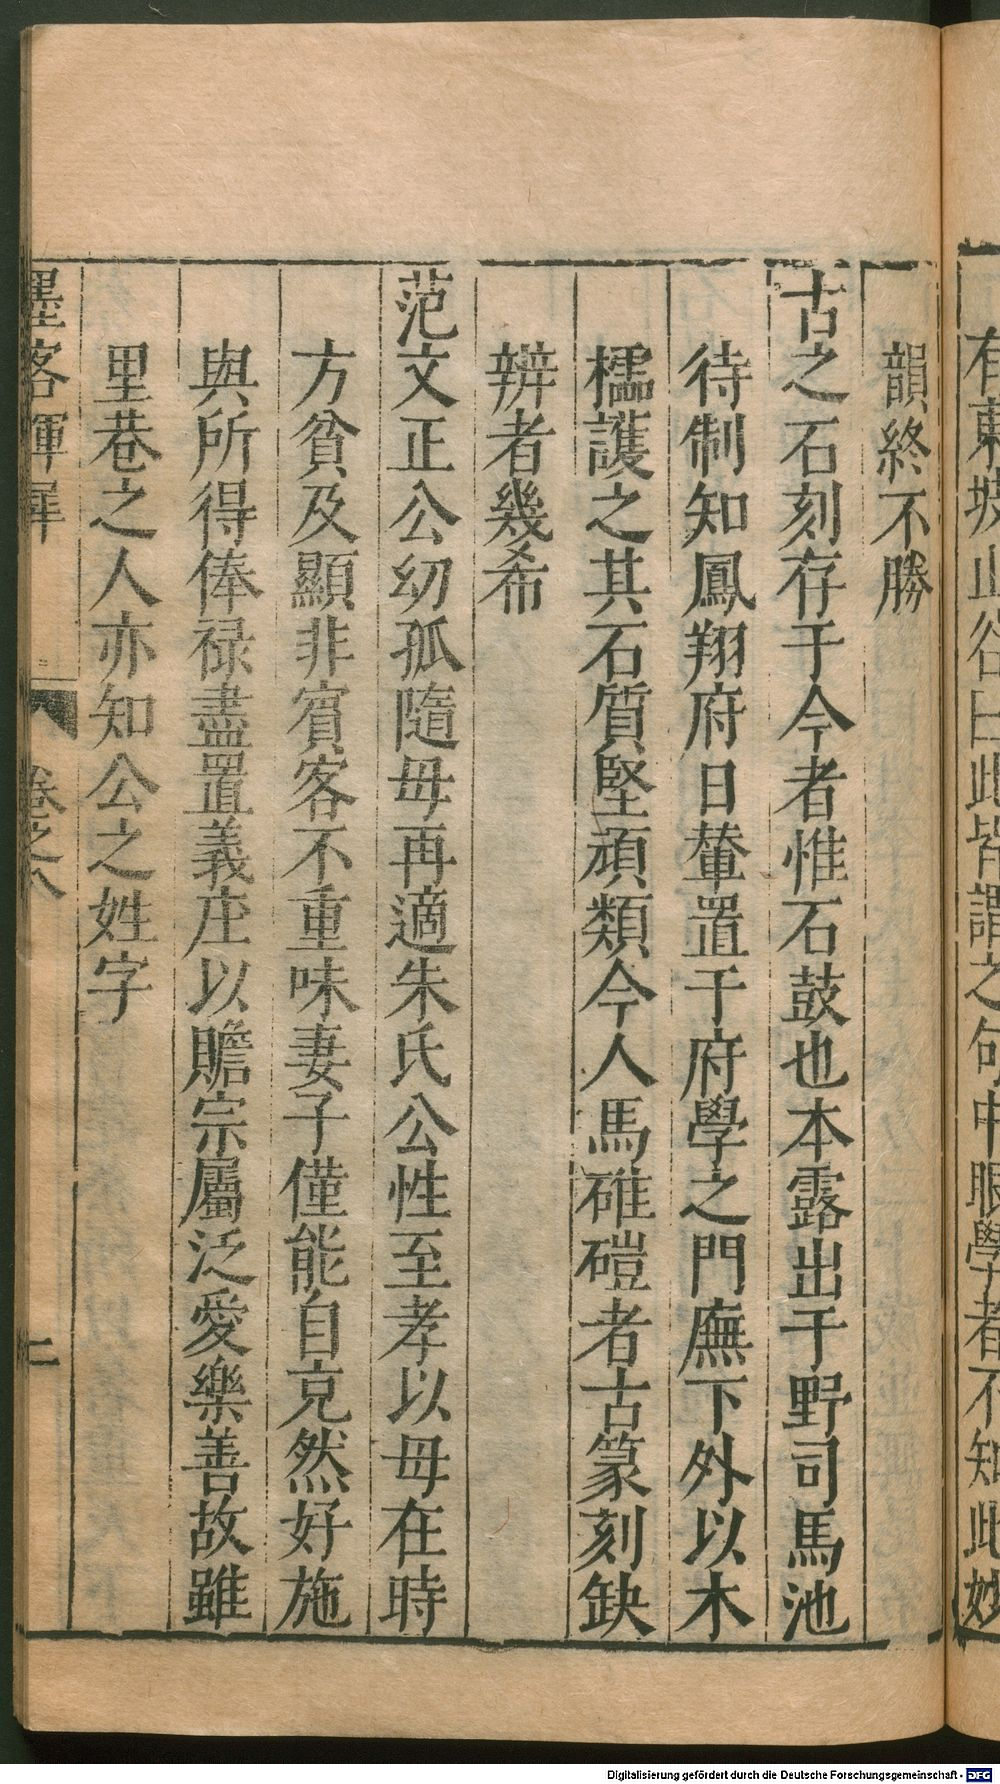 有東坡山谷曰此皆謂之句中眼學者不知此妙
韻終不勝
古之石刻存于今者惟石鼓也本露出于野司馬池
待制知鳳翔府日輦置于府學之門廡下外以木
櫺護之其石質堅頑類今人馬碓磑者古篆刻缺
辨者幾希
范文正公幼孤隨母再適朱氏公性至孝以母在時
方貧及顯非賓客不重味妻子僅能自克然好施
與所得俸禄盡置義庄以贍宗屬泛愛樂善故雖
里巷之人亦知公之姓字
墨客揮犀 卷之八 二
Digitalisierung gefördert durch die Deutsche Forschungsgemeinschaft - DFG